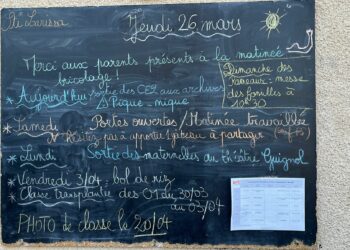 Jeudi 26 mars
Merci aux parents présents à la matineé
bricolage !
Dimanche des
Rameaux : messe
des familles à
10h30
* Aujourd'hui sortie des CE2 aux archives
Pique-nique
* Samedi Portes ouvertes / Matinée travaillée
N'hésitez pas à apporter 1 gâteau à partager
* Lundi Sortie des maternelles au théâtre Guignol
* Vendredi 3/04 : bol de riz
* Classe transplantée des CM du 30/03
au 03/04
PHOTO de classe le 20/04